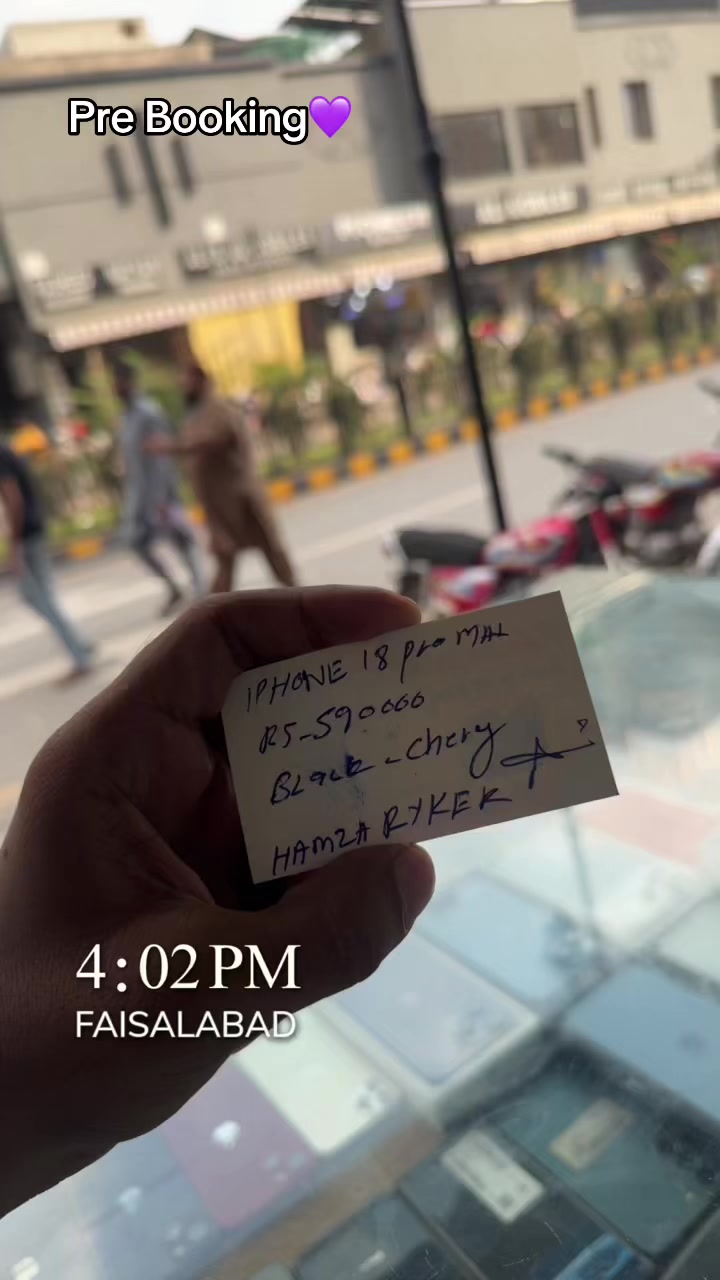 Pre Booking💜
IPHONE 18 pro MAX
RS-590000
BLack-chery
HAMZA RYKER
4:02 PM
FAISALABAD